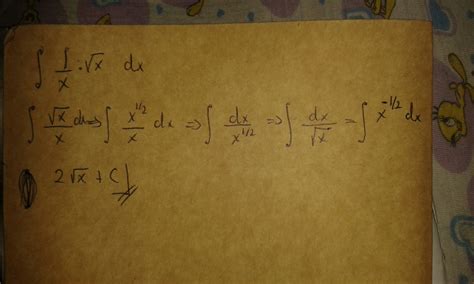 ∫ 1/x · √x dx
∫ √x/x dx ⇒ ∫ x^1/2/x dx ⇒ ∫ dx/x^1/2 ⇒ ∫ dx/√x = ∫ x^-1/2 dx
2√x + C